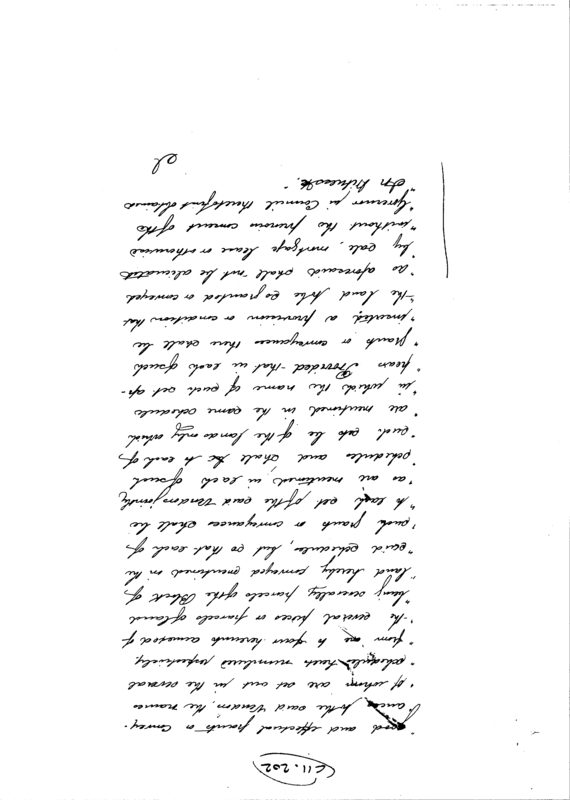 E11.202
"good and effectual grants or convey-
ances to the said Vendors, the names
"of whom are set out in the several
"schedules hereto numbered respectively
"from one to four hereunto annexed of
"the several pieces or parcels of land
"being severally parcels of the Block of
"land hereby conveyed mentioned in the
"said schedules, but so that each of
"such grants or conveyances shall be
"to each set of the said Vendors jointly
"as are mentioned in each of such
"schedules and shall be to each of
"such sets be of the lands only which
"are mentioned in the same schedule
"in which the name of such set ap-
"pear Provided that in each of such
"grants or conveyances there shall be
"inserted a provision or condition that
"the land to be so granted or conveyed
"as aforesaid shall not be alienated
"by sale, mortgage lease or otherwise
"without the previous consent of the
"Governor in Council theretofirst obtained
"In Witness &c"